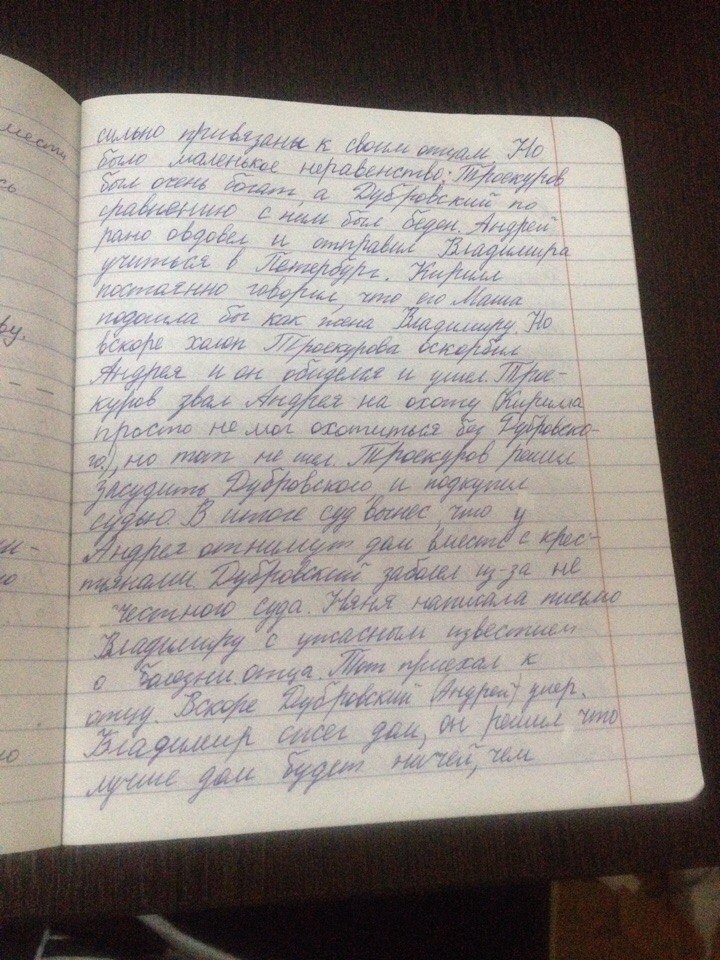 мести
сь
ву.
сильно привязаны к своим отцам. Но
было маленькое неравенство: Троекуров
был очень богат, а Дубровский по
сравнению с ним был беден. Андрей
рано овдовел и отправил Владимира
учиться в Петербург. Кирилл
постоянно говорил, что его Маша
подошла бы как жена Владимиру. Но
вскоре холоп Троекурова оскорбил
Андрея и он обиделся и ушел. Трое-
куров звал Андрея на охоту (Кирилла
просто не мог охотиться без Дубровско-
го), но тот не шел. Троекуров решил
засудить Дубровского, и подкупил
судью. В итоге суд вынес, что у
Андрея отнимут дом вместе с крес-
тьянами Дубровский заболел из-за не
честного суда. Няня написала письмо
Владимиру с ужасным известием
о болезни отца. Тот приехал к
отцу. Вскоре Дубровский (Андрей) умер.
Владимир сжег дом, он решил что
лучше дом будет ничей, чем